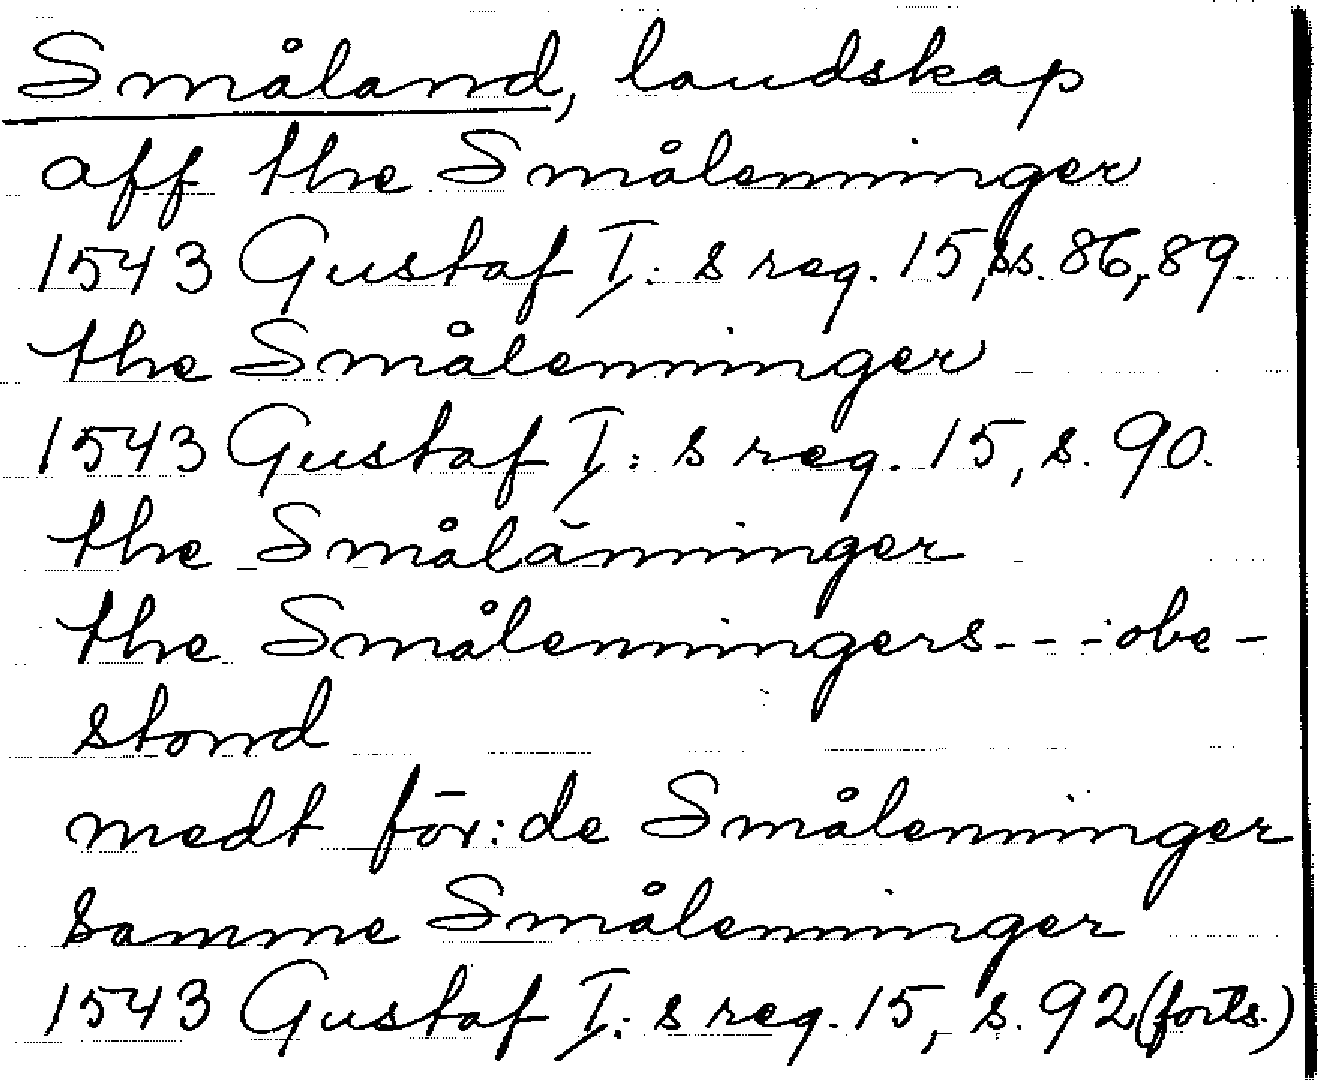 Småland, landskap
aff the Smålenninger
1543 Gustaf I: s reg. 15, ss. 86, 89.
the Smålenninger
1543 Gustaf I: s reg. 15, s. 90.
the Smålänninger
the Smålenningers - - - obe-
stond
medt för:de Smålenninger
samme Smålenninger
1543 Gustaf I: s reg. 15, s. 92 (forts.)